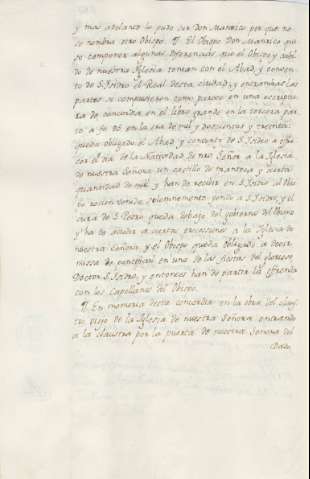 y mas adelante lo puso der Don Manrrico por que no
se nombra otro Obispo. ¶. El Obispo Don Manrrico qui
so componer algunas diferencias, que el Obispo y cabil
do de nuestra Iglesia tenian con el Abad, y conven
to de S. Isidro el Real desta ciudad, y en conformidad las
partes se compusieron como parece en una escriptu
ra de concordia en el libro grande en la tercera par
te a fo. 86 en la era de mil y doscientos y treinta:
queda obligado el Abad y convento de S. Isidro a ofre
cer el dia de la Natividad de nra Señora a la Iglesia
de nuestra Señora un castillo de manteca y cierta
quantidad de miel y han de recibir en S. Isidro al Obis
po quando venido solemnemente venido a S. Isidro, y el
cura de S. Pedro queda debajo del gobierno del Obispo
y ha de acudir a ciertas processiones a la Iglesia de
nuestra Señora, y el Obispo queda obligado a decir
missa de pontifical en una de las fiestas del glorioso
Doctor S. Isidro, y entonces han de partir la ofrenda
con los Capellanes del Obispo.
¶. En memoria desta concordia en la obra del claus
tro viejo de la Iglesia de nuestra Señora entrando
a la claustra por la puerta de nuestra Señora del